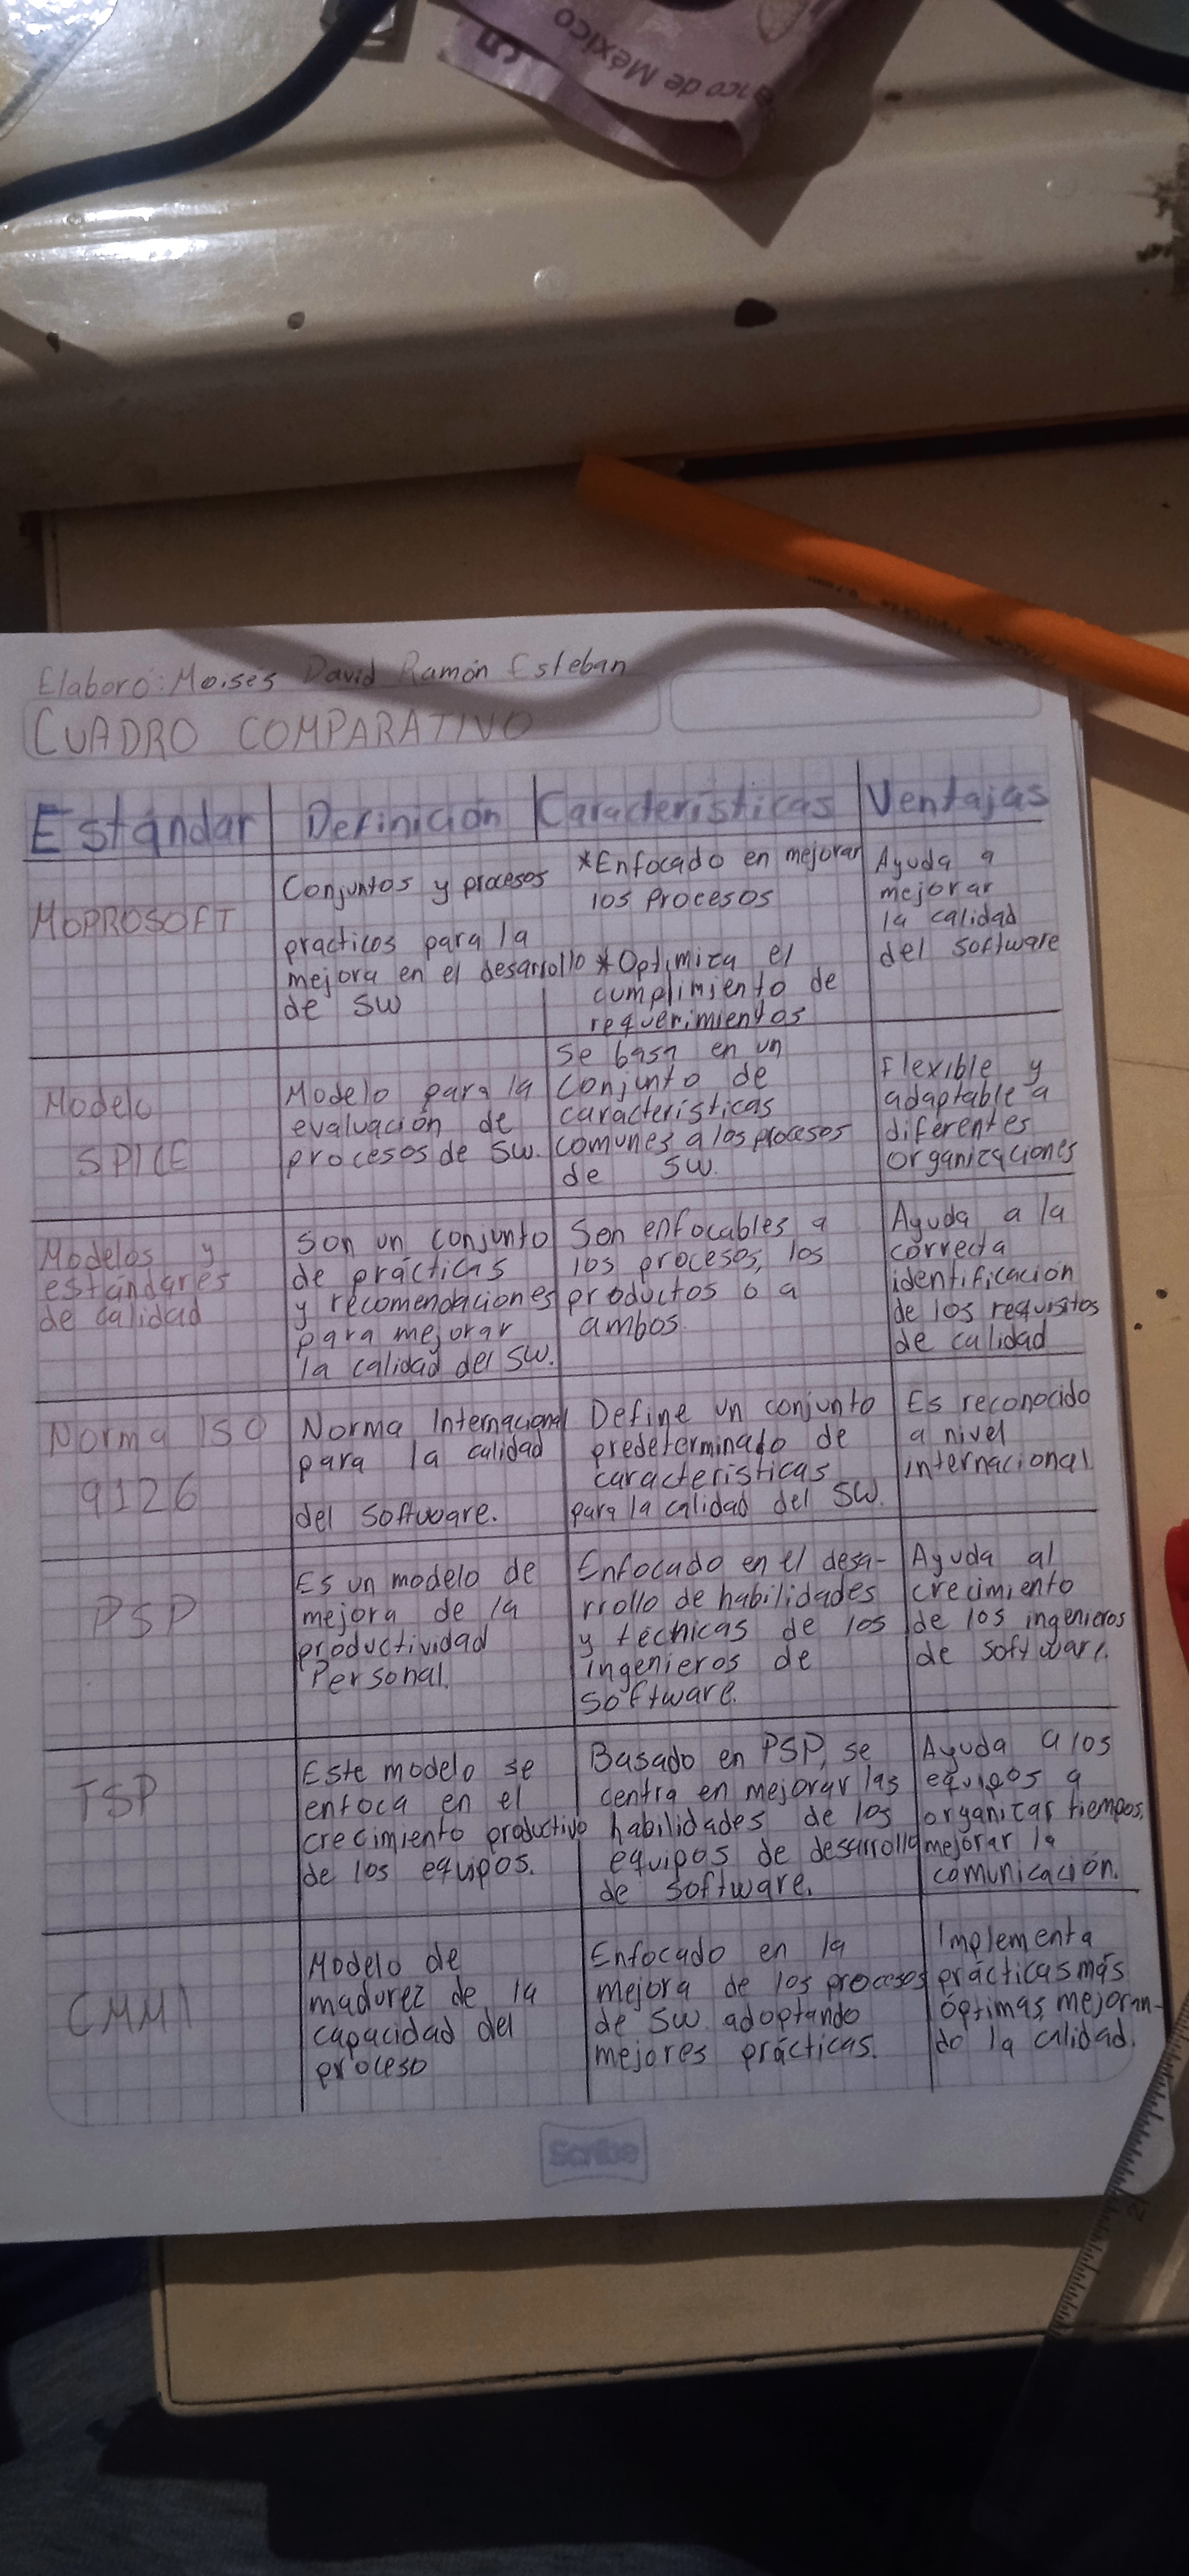 anco de México
5
Elaboro: Moisés David Ramón Esteban
CUADRO COMPARATIVO
Estándar
Definición
Características
Ventajas
MOPROSOFT
Conjuntos y procesos
practicos para la
mejora en el desarrollo
de SW
*Enfocado en mejorar
los procesos
*Optimiza el
cumplimiento de
requerimientos
Ayuda a
mejorar
la calidad
del software
Modelo
SPICE
Modelo para la
evaluación de
procesos de SW.
Se basa en un
conjunto de
características
comunes a los procesos
de SW.
Flexible y
adaptable a
diferentes
organizaciones
Modelos y
estándares
de calidad
Son un conjunto
de prácticas
y recomendaciones
para mejorar
la calidad del SW.
Son enfocables a
los procesos, los
productos o a
ambos.
Ayuda a la
correcta
identificación
de los requisitos
de calidad
Norma ISO
9126
Norma Internacional
para la calidad
del software.
Define un conjunto
predeterminado de
características
para la calidad del SW.
Es reconocido
a nivel
internacional
PSP
Es un modelo de
mejora de la
productividad
Personal.
Enfocado en el desa-
rrollo de habilidades
y técnicas de los
ingenieros de
software.
Ayuda al
crecimiento
de los ingenieros
de software.
TSP
Este modelo se
enfoca en el
crecimiento productivo
de los equipos.
Basado en PSP, se
centra en mejorar las
habilidades de los
equipos de desarrollo
de software.
Ayuda a los
equipos a
organizar tiempos,
mejorar la
comunicación.
CMMI
Modelo de
madurez de la
capacidad del
proceso
Enfocado en la
mejora de los procesos
de SW. adoptando
mejores prácticas.
Implementa
prácticas más
óptimas, mejoran-
do la calidad.
Scribe